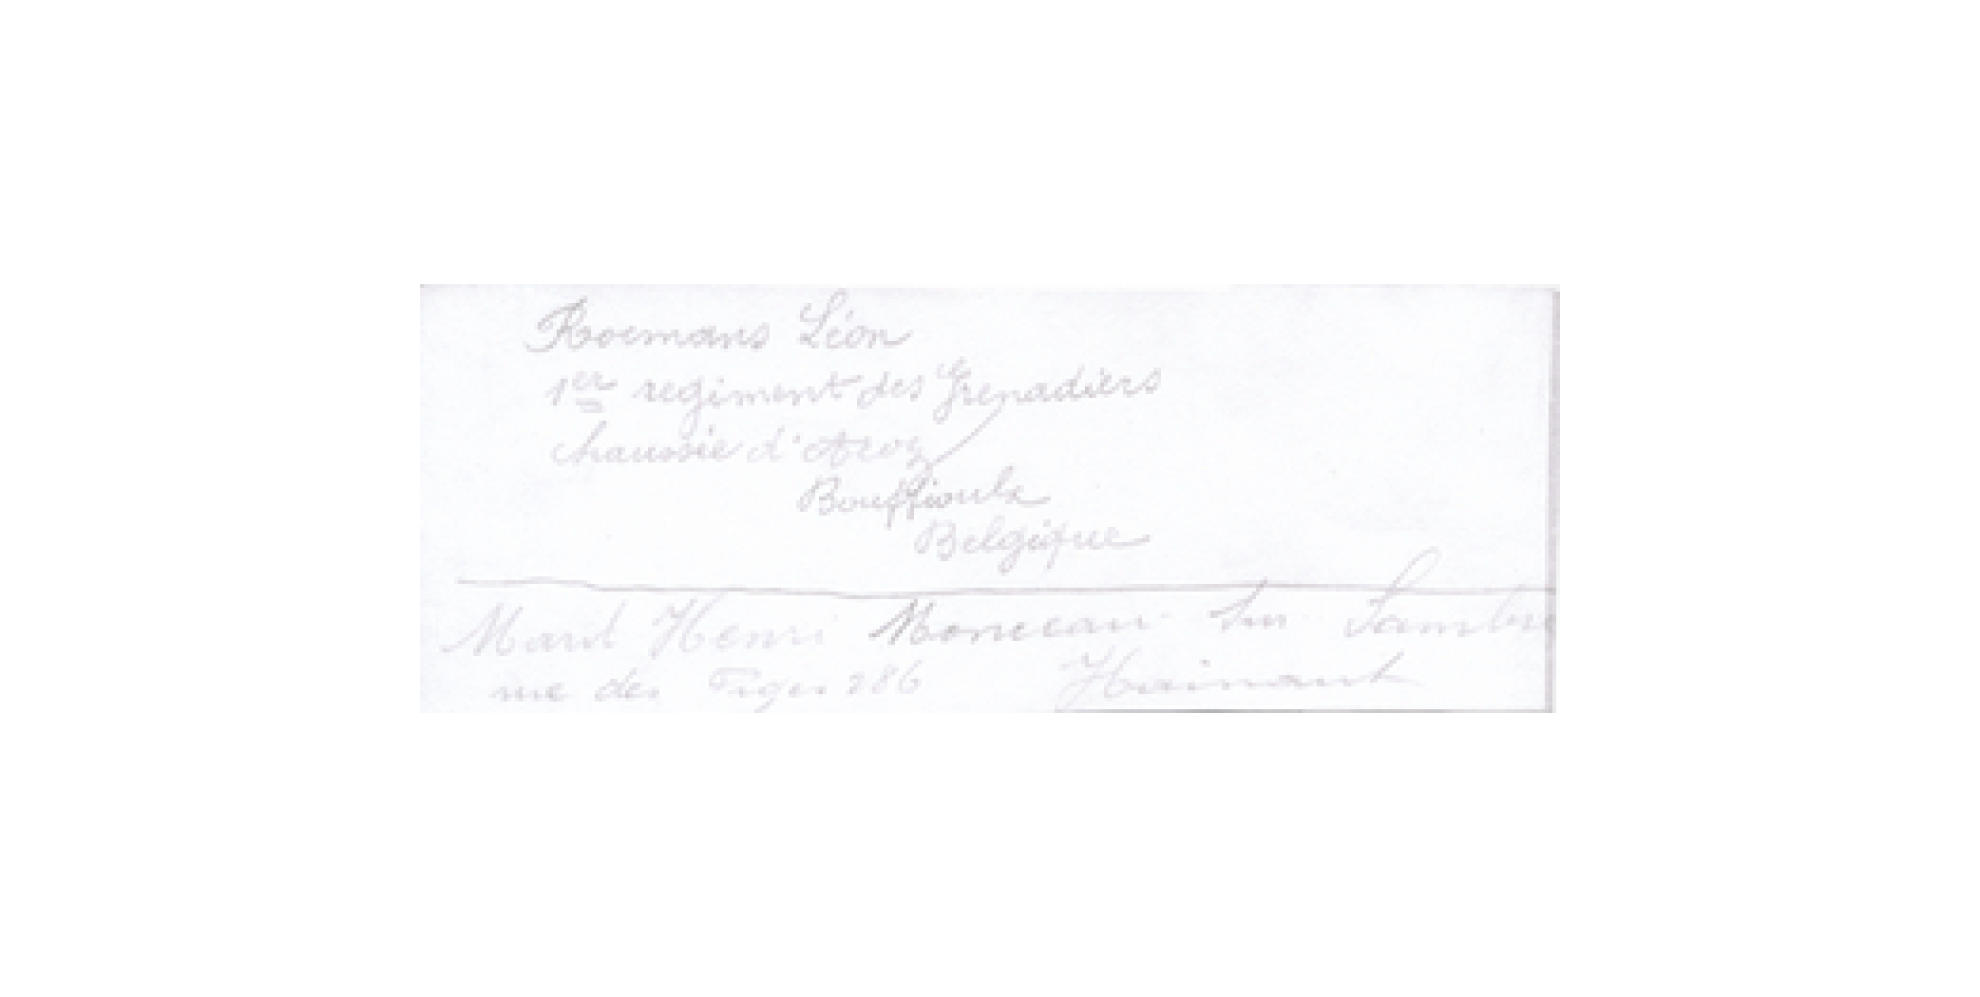 Roemans Léon
1er regiment des Grenadiers
chaussée d'Acoz
Bouffioulx
Belgique
Henri Monceau sur Sambre
rue des 286 Hainaut